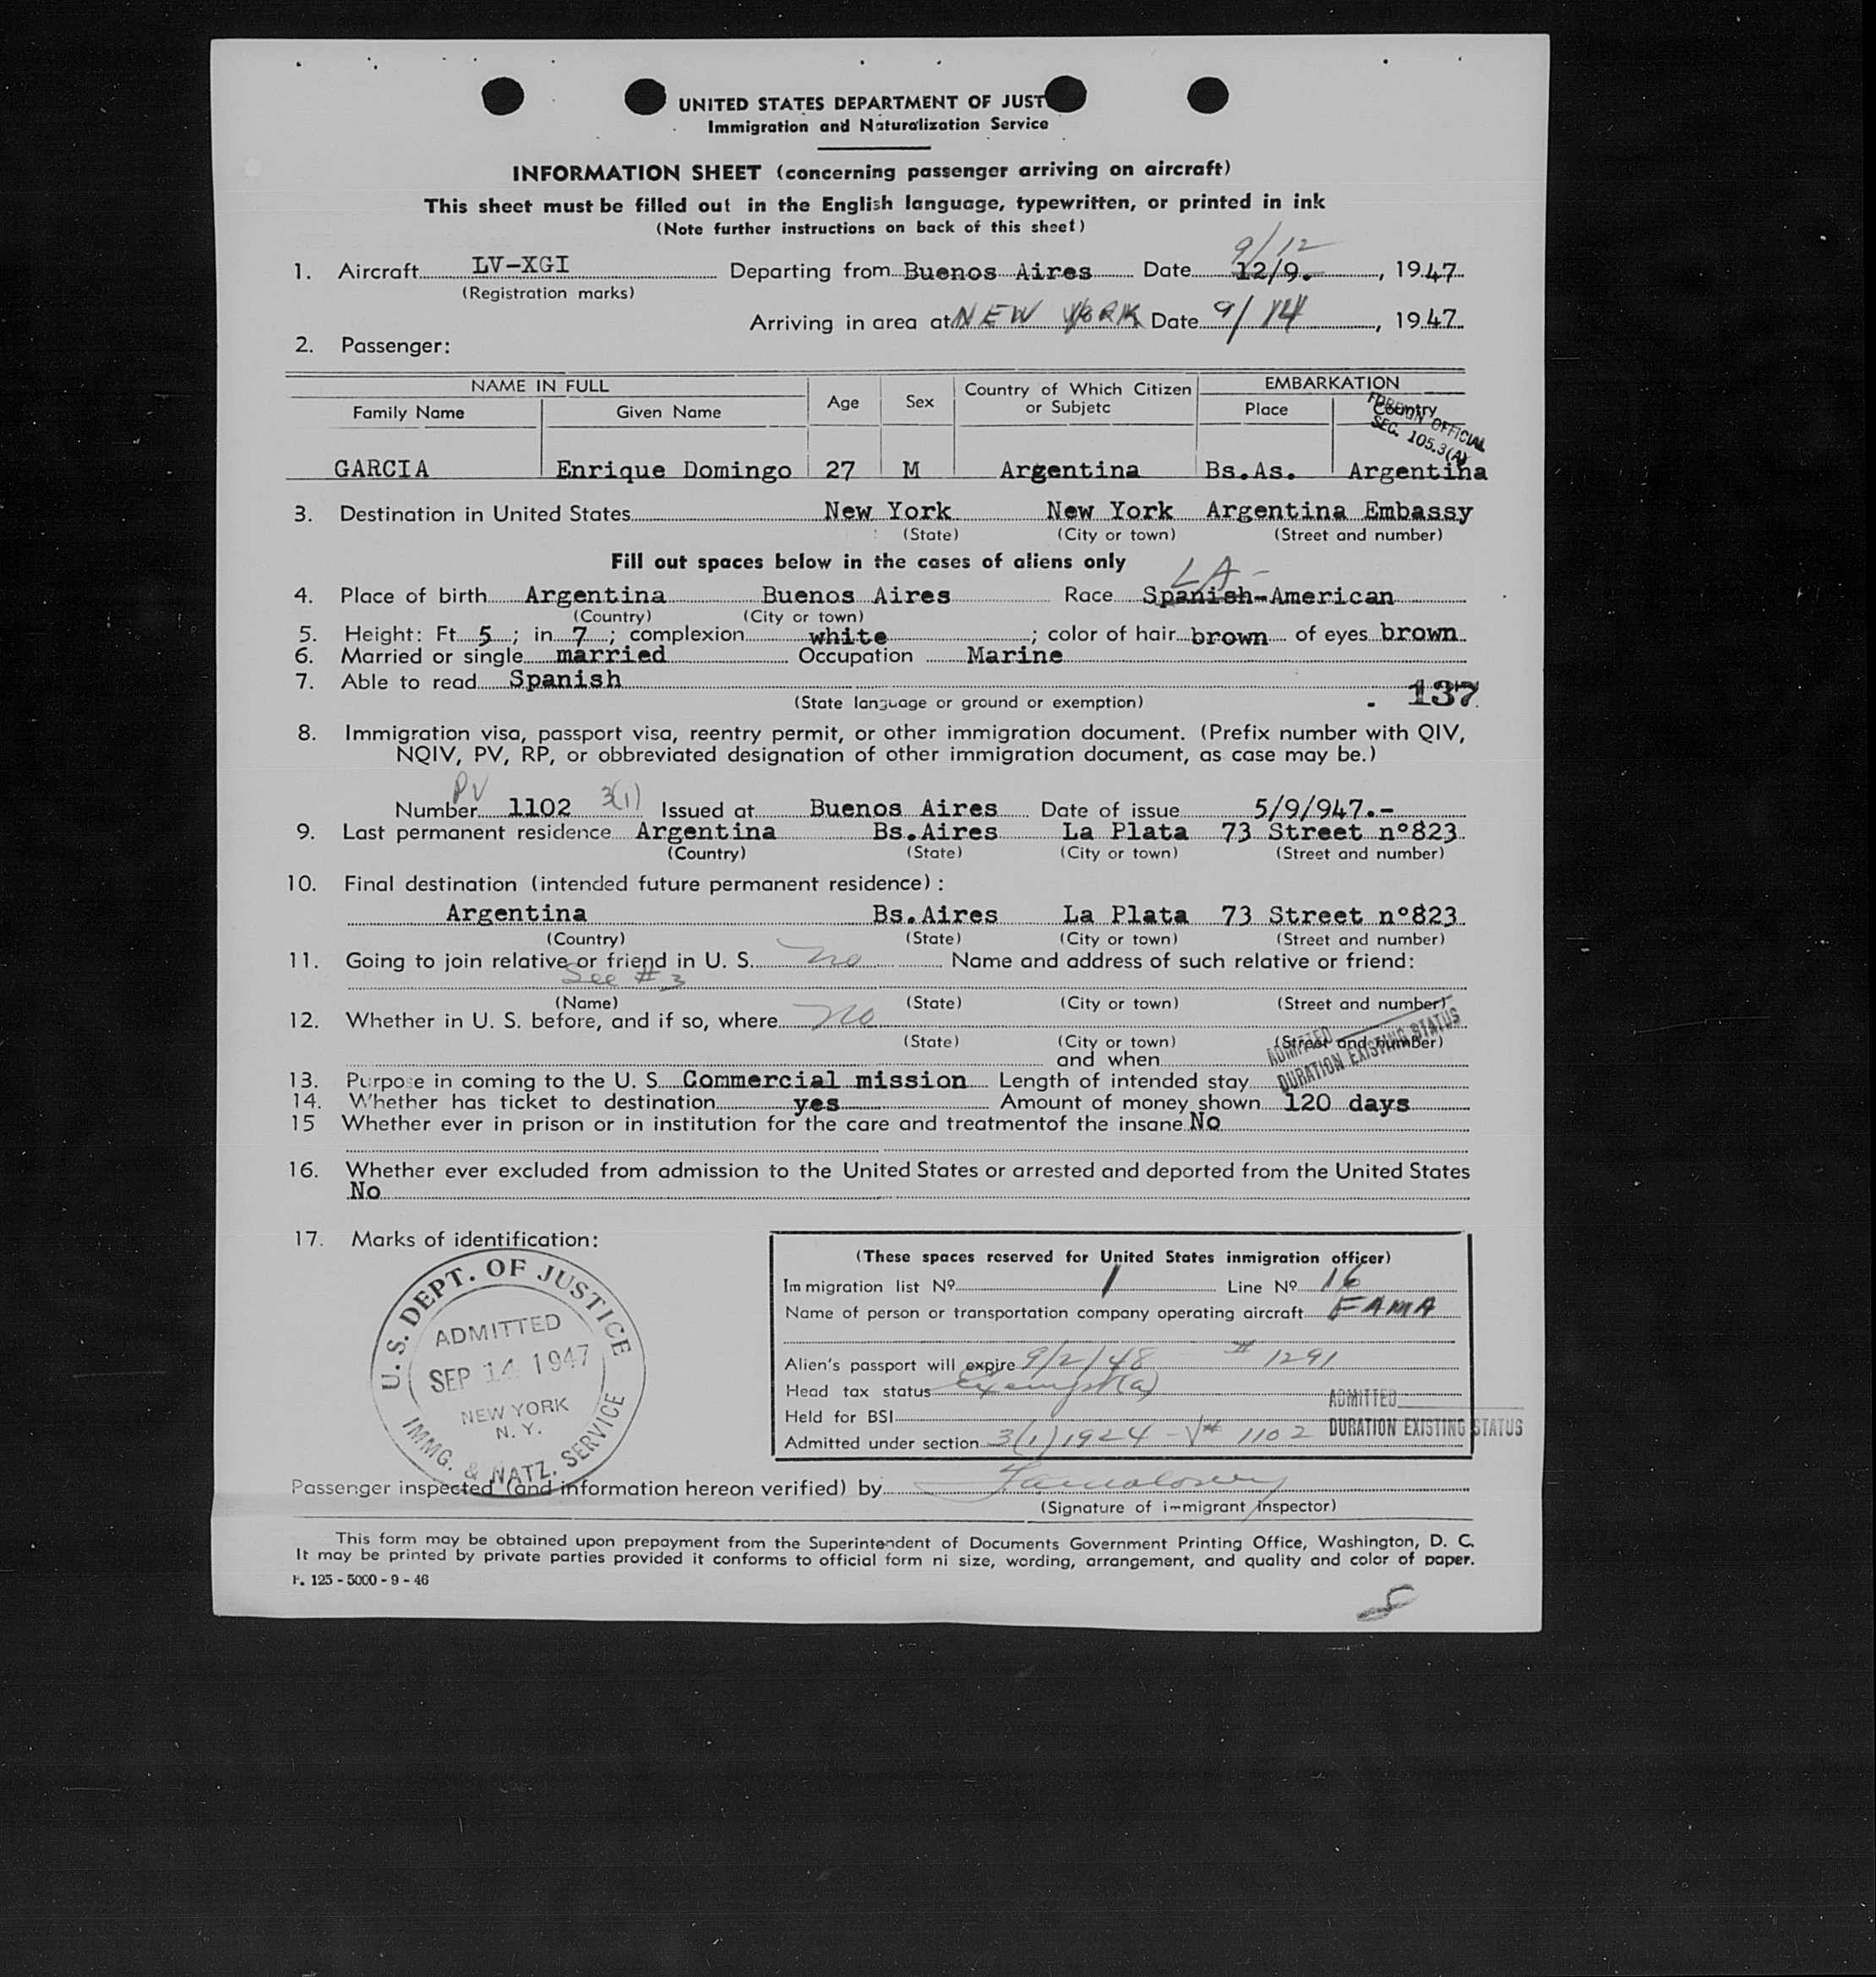 UNITED STATES DEPARTMENT OF JUST
Immigration and Naturalization Service
INFORMATION SHEET (concerning passenger arriving on aircraft)
This sheet must be filled out in the English language, typewritten, or printed in ink
(Note further instructions on back of this sheet)
9/12
1. Aircraft LV-XGI Departing from Buenos Aires Date 12/9. , 1947
(Registration marks)
Arriving in area at NEW YORK Date 9/14 , 1947
2. Passenger:
NAME IN FULL Age Sex Country of Which Citizen or Subjetc EMBARKATION
Family Name Given Name Place Country
FOREIGN OFFICIAL
SEC. 105.3(A)
GARCIA Enrique Domingo 27 M Argentina Bs.As. Argentina
3. Destination in United States New York New York Argentina Embassy
(State) (City or town) (Street and number)
Fill out spaces below in the cases of aliens only
LA-
4. Place of birth Argentina Buenos Aires Race Spanish-American
(Country) (City or town)
5. Height: Ft 5 ; in 7 ; complexion white ; color of hair brown of eyes brown
6. Married or single married Occupation Marine
7. Able to read Spanish
(State language or ground or exemption) 137
8. Immigration visa, passport visa, reentry permit, or other immigration document. (Prefix number with QIV,
NQIV, PV, RP, or obbreviated designation of other immigration document, as case may be.)
PV 3(1)
Number 1102 Issued at Buenos Aires Date of issue 5/9/947.-
9. Last permanent residence Argentina Bs.Aires La Plata 73 Street nº823
(Country) (State) (City or town) (Street and number)
10. Final destination (intended future permanent residence) :
Argentina Bs.Aires La Plata 73 Street nº823
(Country) (State) (City or town) (Street and number)
11. Going to join relative or friend in U. S. no Name and address of such relative or friend:
See #3
(Name) (State) (City or town) (Street and number)
12. Whether in U. S. before, and if so, where no
(State) (City or town) (Street and number)
and when
ADMITTED
DURATION EXISTING STATUS
13. Purpose in coming to the U. S. Commercial mission Length of intended stay
14. Whether has ticket to destination yes Amount of money shown 120 days
15 Whether ever in prison or in institution for the care and treatmentof the insane No
16. Whether ever excluded from admission to the United States or arrested and deported from the United States
No
17. Marks of identification:
U. S. DEPT. OF JUSTICE
ADMITTED
SEP 14 1947
NEW YORK
N. Y.
IMMG. & NATZ. SERVICE
(These spaces reserved for United States inmigration officer)
Immigration list Nº 1 Line Nº 16
Name of person or transportation company operating aircraft FAMA
Alien's passport will expire 9/2/48 # 1291
Head tax status Exempt(a)
ADMITTED
Held for BSI
DURATION EXISTING STATUS
Admitted under section 3(1) 1924 - V# 1102
Passenger inspected (and information hereon verified) by
(Signature of immigrant inspector)
This form may be obtained upon prepayment from the Superintendent of Documents Government Printing Office, Washington, D. C.
It may be printed by private parties provided it conforms to official form ni size, wording, arrangement, and quality and color of paper.
F. 125 - 5000 - 9 - 46